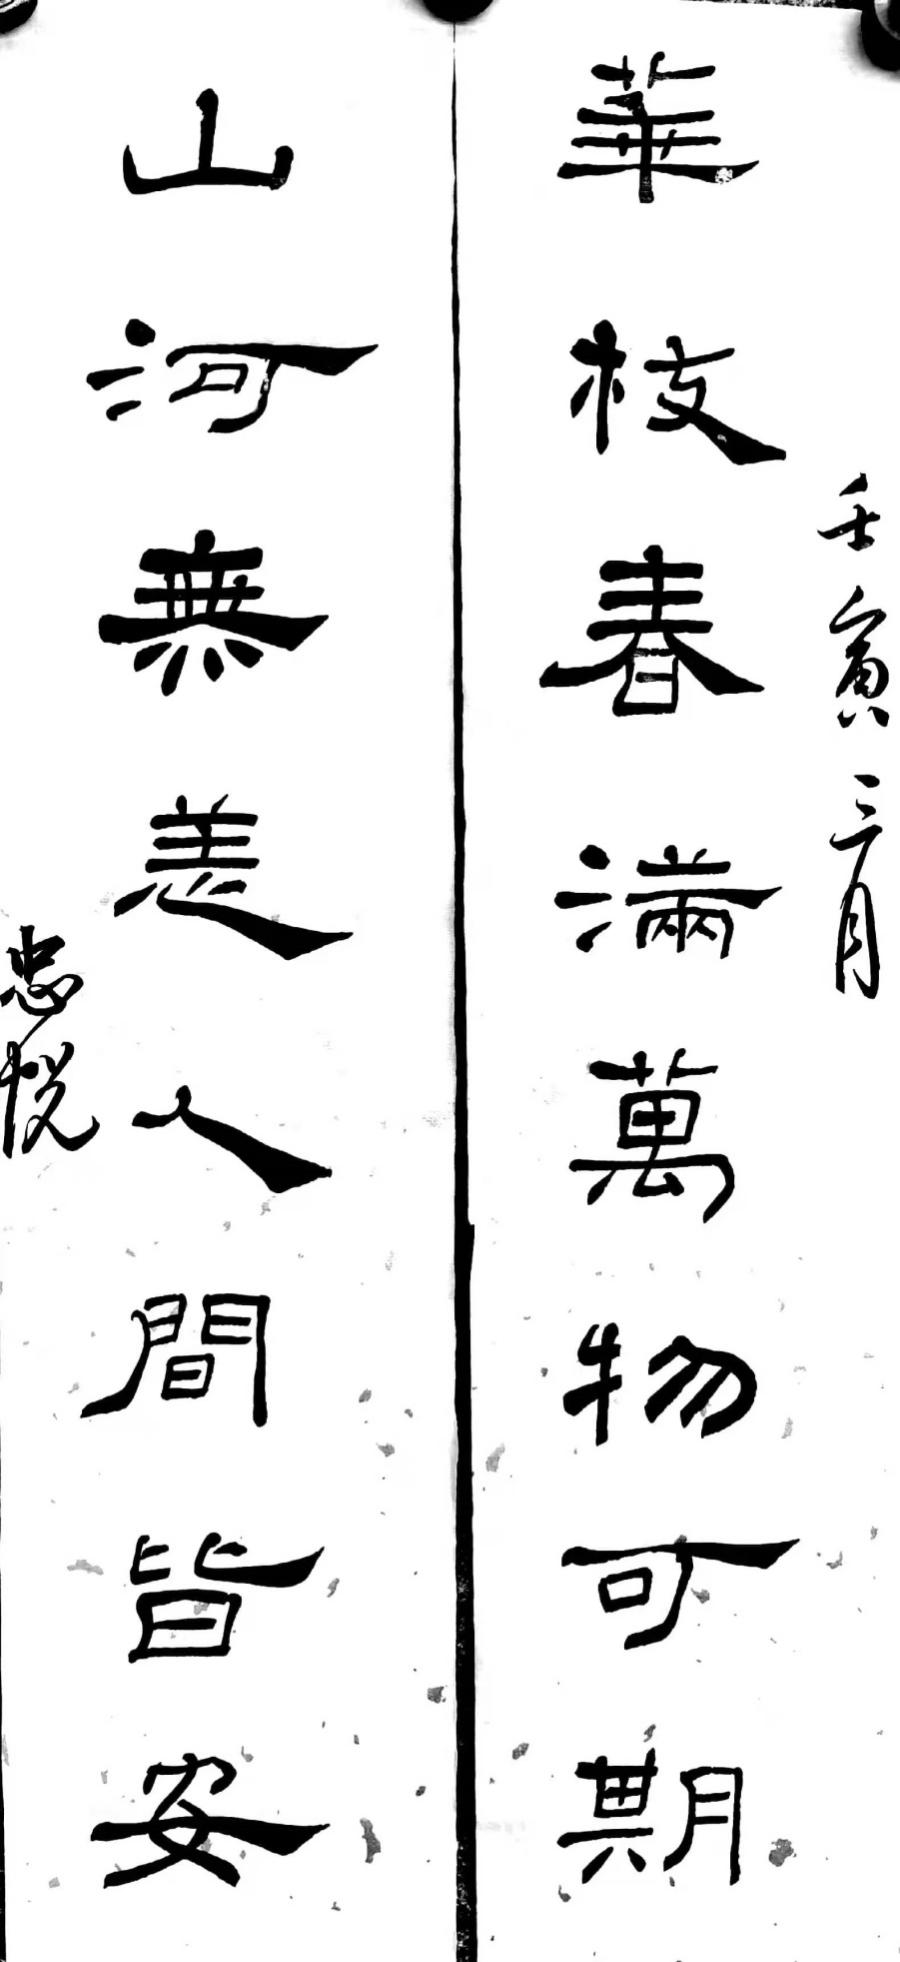 壬寅三月
華枝春滿萬物可期
山河無恙人間皆安
忠悅